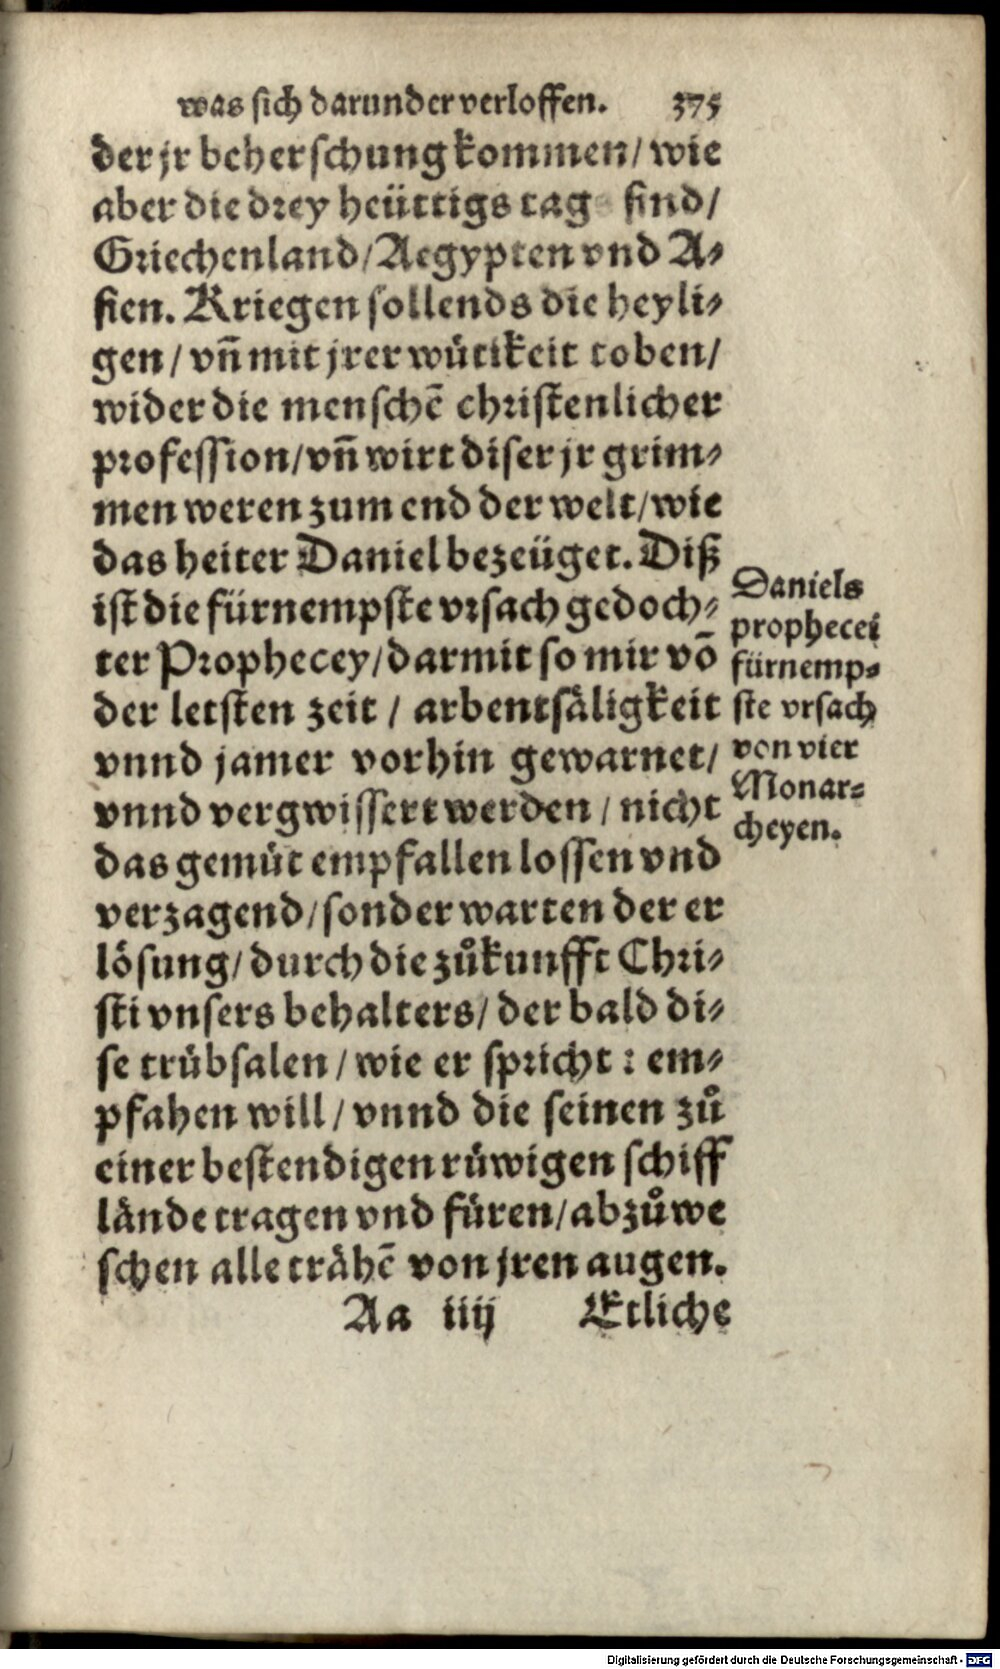 was sich darunder verloffen. 375
der jr beherschung kommen/ wie
aber die drey heüttigs tag sind/
Griechenland/ Aegypten vnd A⸗
sien. Kriegen sollends die heyli⸗
gen/ vñ mit jrer wütikeit toben/
wider die menschē christenlicher
profession/ vñ wirt diser jr grim⸗
men weren zum end der welt/ wie
das heiter Daniel bezeüget. Diß
ist die fürnempste vrsach gedoch⸗
ter Prophecey/ darmit so mir vō
der letsten zeit / arbentsäligkeit
vnnd jamer vorhin gewarnet/
vnnd vergwissert werden / nicht
das gemüt empfallen lossen vnd
verzagend/ sonder warten der er
lösung/ durch die zůkunfft Chri⸗
sti vnsers behalters/ der bald di⸗
se trübsalen / wie er spricht : em⸗
pfahen will / vnnd die seinen zů
einer bestendigen rüwigen schiff
lände tragen vnd füren/ abzůwe
schen alle trähē von jren augen.
Aa iiij Etliche
Daniels
prophecei
fürnemp⸗
ste vrsach
von vier
Monar⸗
cheyen.
Digitalisierung gefördert durch die Deutsche Forschungsgemeinschaft - DFG